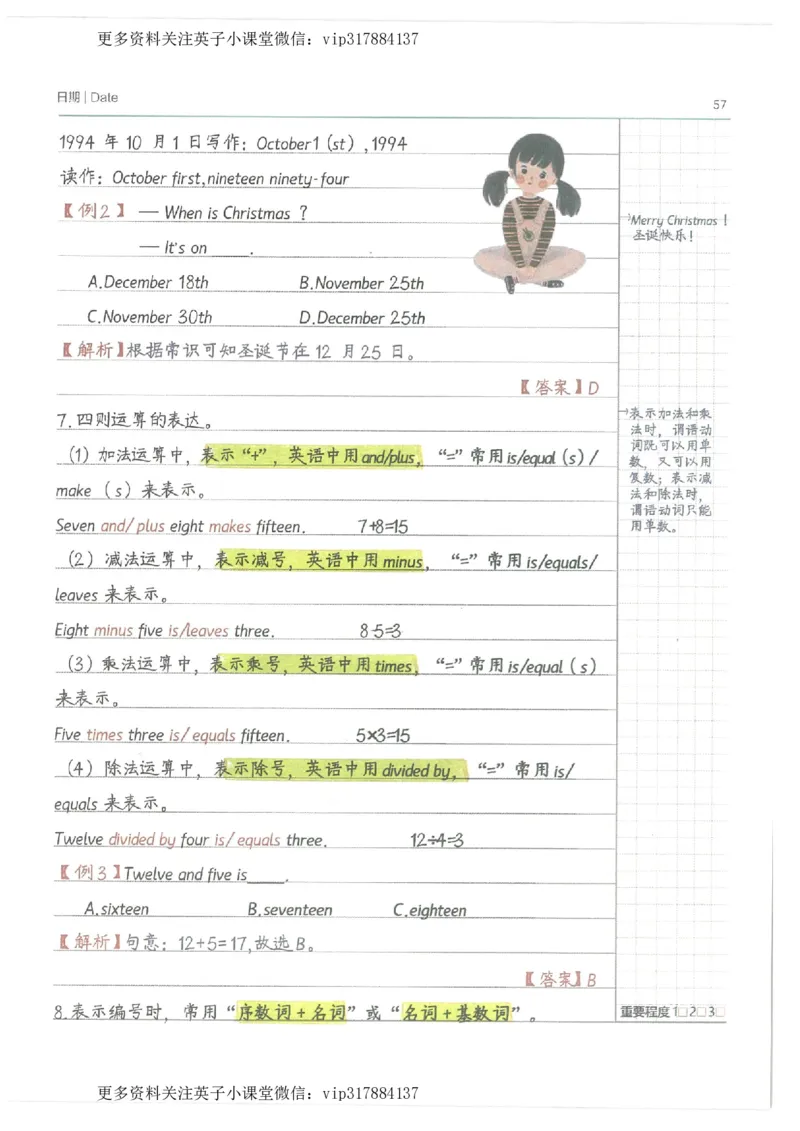 更多资料关注英子小课堂微信：vip317884137
日期 | Date
57
1994 年 10 月 1 日写作：October1 (st) ,1994
读作：October first,nineteen ninety-four
【例2】 — When is Christmas ?
— It's on ____.
A.December 18th B.November 25th
C.November 30th D.December 25th
【解析】根据常识可知圣诞节在 12 月 25 日。
【答案】D
Merry Christmas !
圣诞快乐！
7.四则运算的表达。
（1）加法运算中，表示“+”，英语中用and/plus，“=”常用is/equal (s) /
make （s）来表示。
Seven and/ plus eight makes fifteen. 7+8=15
（2）减法运算中，表示减号，英语中用 minus，“=”常用 is/equals/
leaves 来表示。
Eight minus five is/leaves three. 8-5=3
（3）乘法运算中，表示乘号，英语中用 times，“=”常用 is/equal（s）
来表示。
Five times three is/ equals fifteen. 5×3=15
（4）除法运算中，表示除号，英语中用 divided by，“=”常用 is/
equals 来表示。
Twelve divided by four is/ equals three. 12÷4=3
【例3】Twelve and five is____.
A.sixteen B.seventeen C.eighteen
【解析】句意：12+5=17,故选 B。
【答案】B
8.表示编号时，常用“序数词 + 名词”或“名词 + 基数词”。
表示加法和乘
法时，谓语动
词既可以用单
数，又可以用
复数；表示减
法和除法时，
谓语动词只能
用单数。
重要程度 1□ 2□ 3□
更多资料关注英子小课堂微信：vip317884137